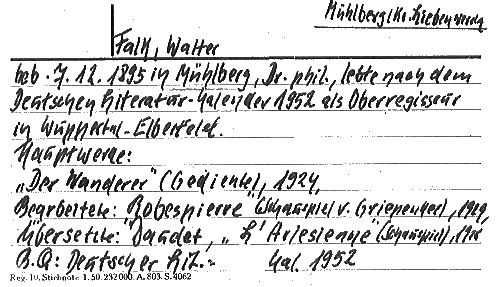 Mühlberg/Kr. Liebenwerda
Falk, Walter
Geb. 7. 12. 1895 in Mühlberg, Dr. phil., lebte nach dem
Deutschen Literatur-Kalender 1952 als Oberregisseur
in Wuppertal-Elberfeld.
Hauptwerke:
„Der Wanderer" (Gedichte), 1924,
Bearbeitete: "Robespierre" (Schauspiel v. Griepenkerl), 1929,
Übersetzte: Daudet, „L'Arlesienne" (Schauspiel),
B.Q: Deutscher Lit.- Kal. 1952
Reg. 10. Stichnote 1. 50. 232000. A. 803. S. 4062